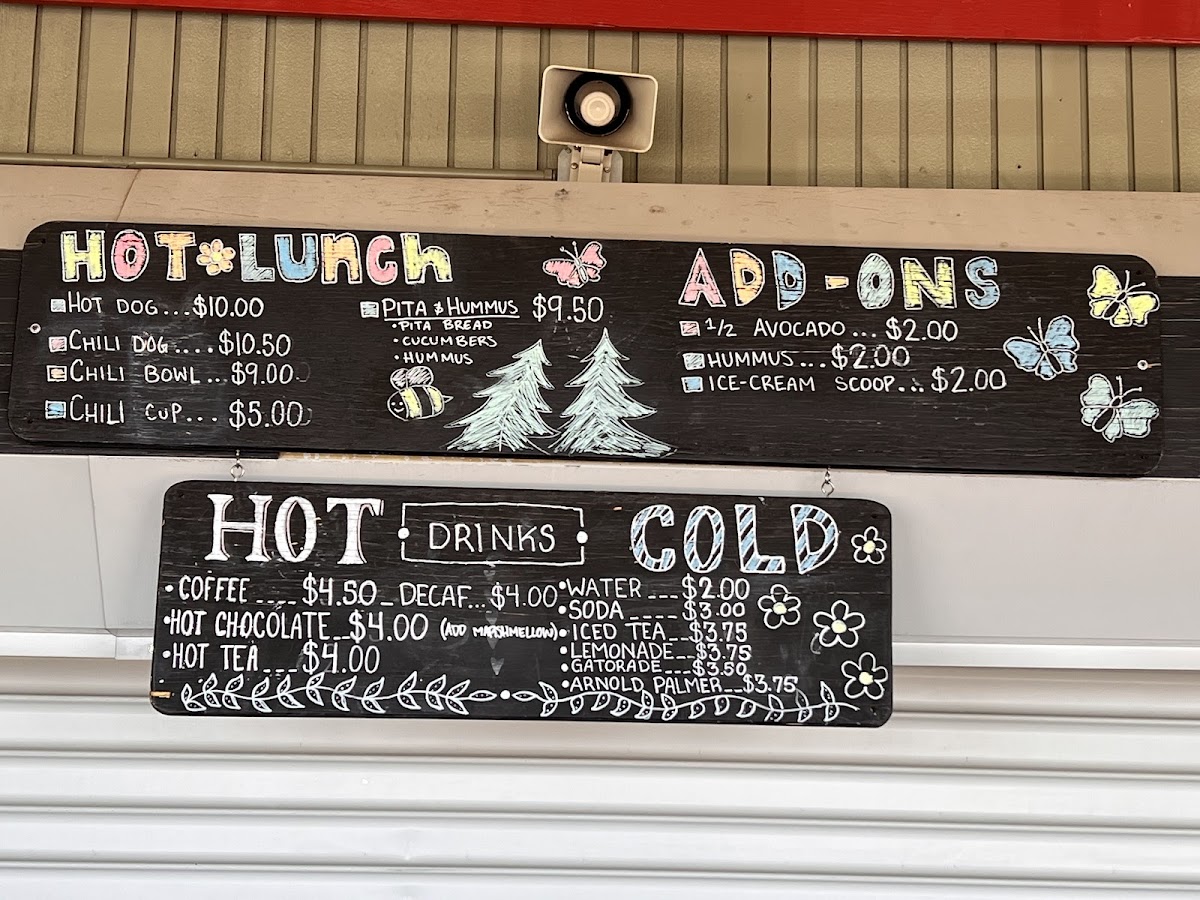 HOT LUNCH
HOT DOG...$10.00
CHILI DOG....$10.50
CHILI BOWL..$9.00
CHILI CUP...$5.00
PITA & HUMMUS $9.50
•PITA BREAD
•CUCUMBERS
•HUMMUS
ADD-ONS
1/2 AVOCADO...$2.00
HUMMUS...$2.00
ICE-CREAM SCOOP...$2.00
HOT DRINKS COLD
•COFFEE ____ $4.50_DECAF...$4.00
•HOT CHOCOLATE__$4.00 (ADD MARSHMELLOW)
•HOT TEA___$4.00
•WATER ___$2.00
•SODA ____$3.00
•ICED TEA__$3.75
•LEMONADE__$3.75
•GATORADE___$3.50
•ARNOLD PALMER__$3.75